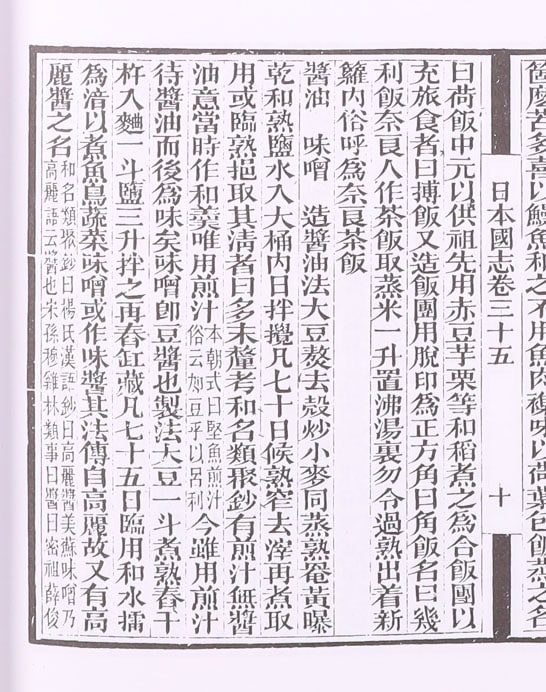 麼苦多喜以鰻魚和之不用魚肉複味以荷葉包飯蒸之名
日本國志卷三十五 十
曰荷飯中元以供祖先用赤豆芋栗等和稻煮之為合飯團以
充旅食者曰摶飯又造飯團用脫印為正方角曰角飯名曰幾
利飯奈良人作茶飯取蒸米一升置沸湯裏勿令過熟出着新
籮內俗呼為奈良茶飯
醬油 味噌 造醬油法大豆熬去殼炒小麥同蒸熟罨黃曝
乾和熟鹽水入大桶內日拌攪凡七十日候熟窄去滓再煮取
用或臨熟挹取其清者曰多末釐考和名類聚鈔有煎汁無醬
油意當時作和羹唯用煎汁本朝式曰堅魚煎汁俗云加豆乎以呂利今雖用煎汁
待醬油而後為味矣味噌卽豆醬也製法大豆一斗煮熟舂千
杵入麴一斗鹽三升拌之再舂缸藏凡七十五日臨用和水擂
為湆以煮魚鳥蔬菜味噌或作味醬其法傳自高麗故又有高
麗醬之名和名類聚鈔曰楊氏漢語鈔曰高麗醬美蘇味噌乃高麗語云醬也宋孫穆雞林類事曰醬曰密祖薛俊